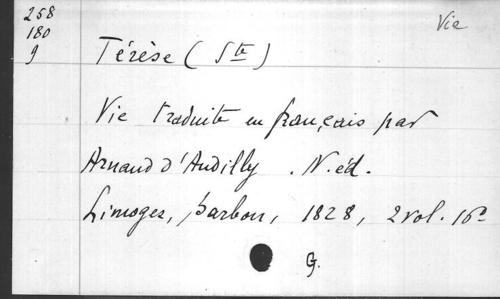 258
180
9
Vie
Térèse (Ste)
Vie traduite en français par
Arnaud d'Andilly . N. éd.
Limoges, Barbou, 1828, 2 vol. 16°
G.